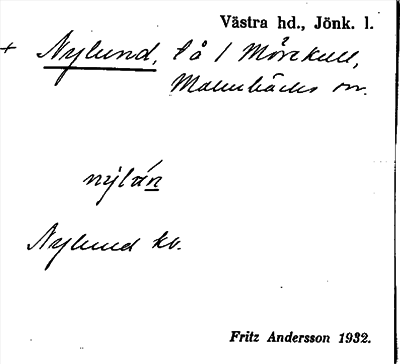 Västra hd., Jönk. l.
+ Nylund, lå / Mörekull,
Malmbäcks sn.
nýlán
Nylund kv.
Fritz Andersson 1932.